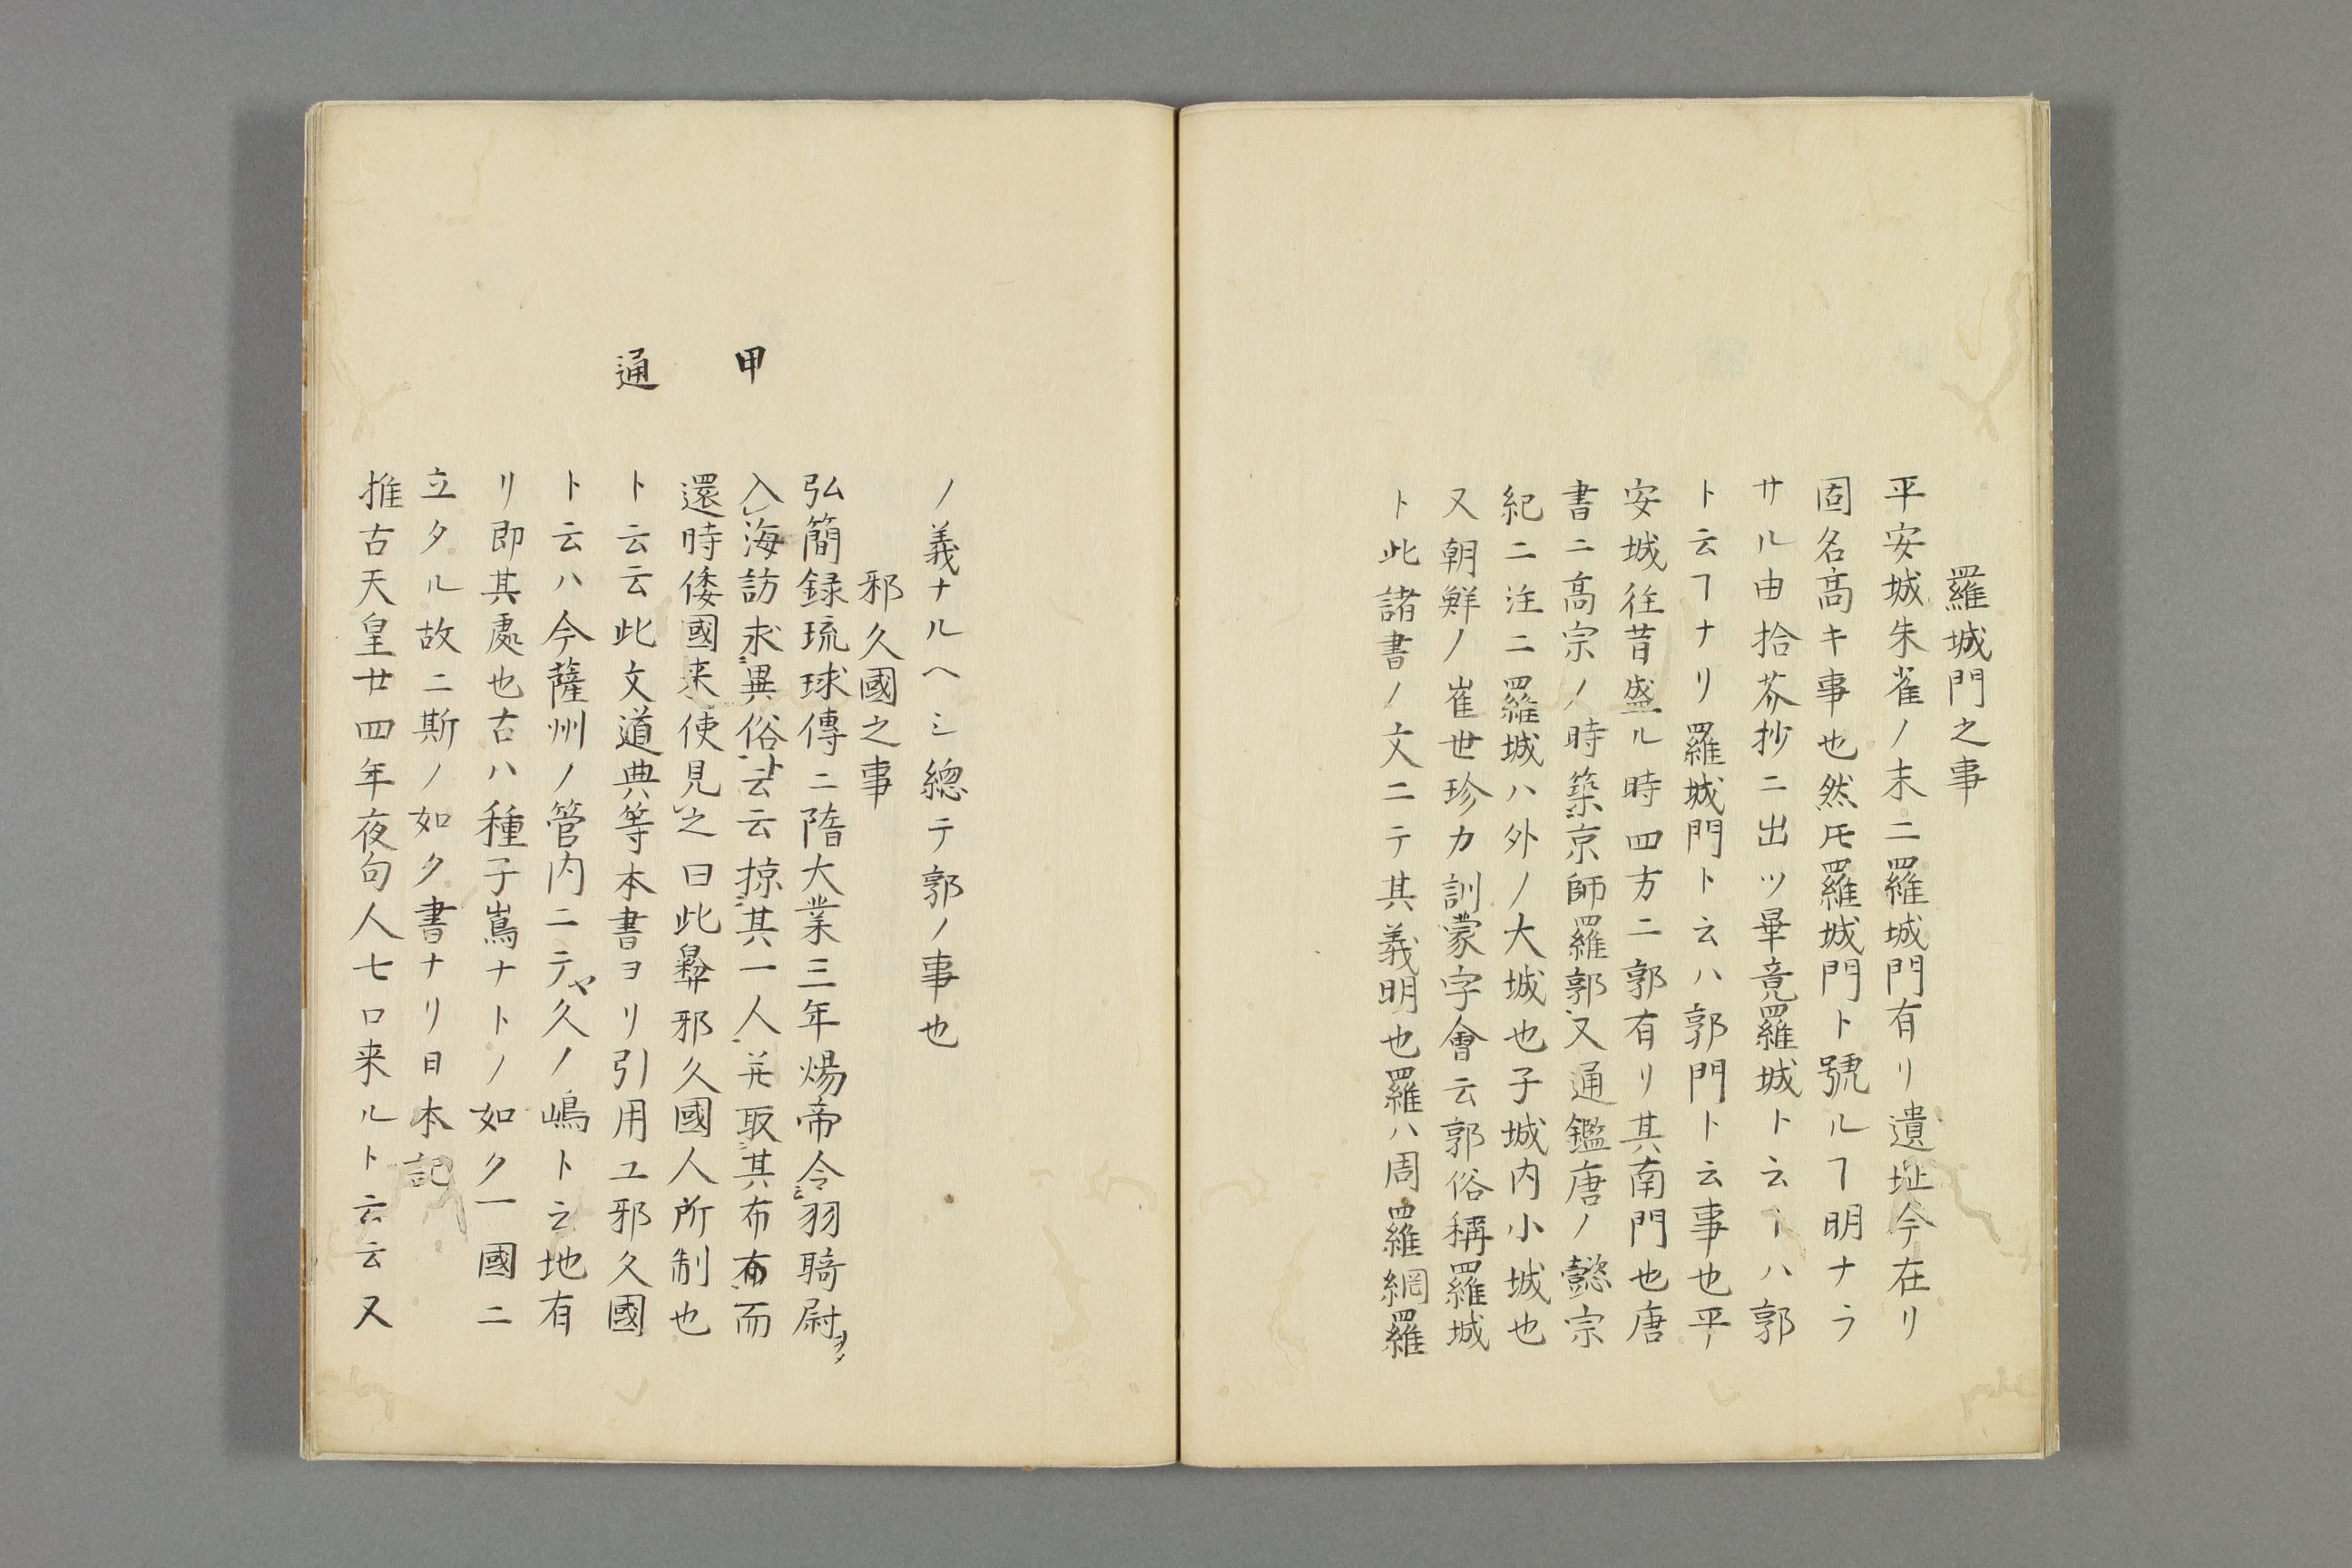 羅城門之事
平安城朱雀ノ末ニ羅城門有リ遺址今在リ
固名高キ事也然𪜈羅城門ト號ルヿ明ナラ
サル由拾芥抄ニ出ツ畢竟羅城ト云ハ郭
ト云ヿナリ羅城門ト云ハ郭門ト云事也平
安城往昔盛ル時四方ニ郭有リ其南門也唐
書ニ高宗ノ時築京師羅郭又通鑑唐ノ懿宗
紀ニ注ニ羅城ハ外ノ大城也子城内小城也
又朝鮮ノ崔世珍カ訓蒙字會云郭俗稱羅城
ト此諸書ノ文ニテ其義明也羅ハ周羅網羅
ノ義ナルヘシ總テ郭ノ事也
邪久國之事
弘簡録琉球傳ニ隋大業三年煬帝令羽騎尉ヲシ
甲
入海訪求異俗ト云云掠其一人并取其布布而
還時倭國来使見之曰此邪久國人所制也
通
ト云云此文道典等本書ヨリ引用ユ邪久國
ト云ハ今薩州ノ管内ニテヤ久ノ嶋ト云地有
リ即其處也古ハ種子嶌ナトノ如ク一國ニ
立タル故ニ斯ノ如ク書ナリ日本記
推古天皇廿四年夜句人七口来ルト云云又